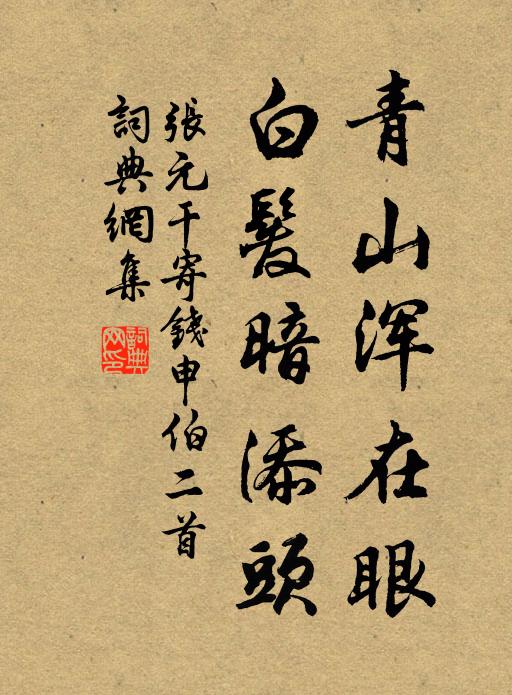 青山浑在眼
白髮暗添頭
張元干寄錢申伯二首
詞典網集
詞典網印